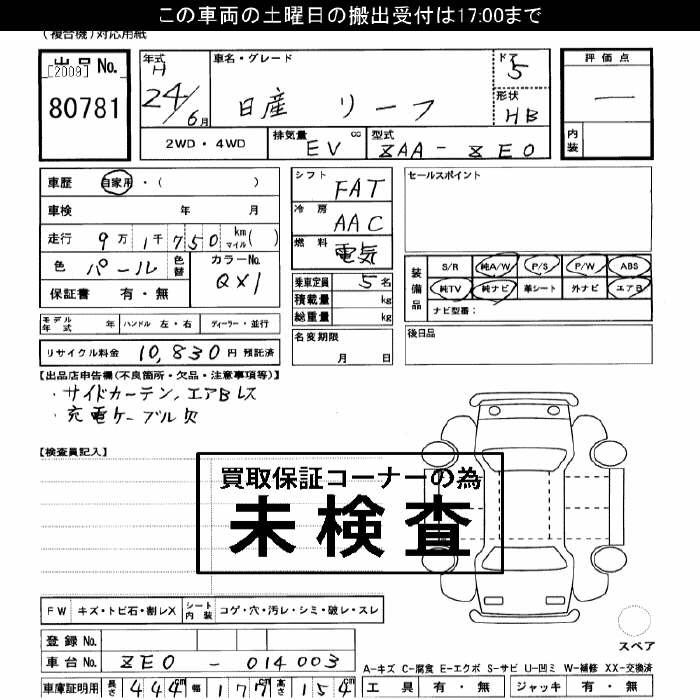 この車両の土曜日の搬出受付は17:00まで
(複合機)対応用紙
出品 No.
[2009]
80781
年式 H 24/6月
車名・グレード
日産 リーフ
ドア 5
形状 HB
評価点
—
内装
2WD・4WD
排気量 EV cc
型式 ZAA-ZE0
車歴 自家用・( )
車検 年 月
走行 9万1千750 km マイル( )
色 パール 色替 カラーNo. QX1
保証書 有・無
シフト FAT
冷房 AAC
燃料 電気
乗車定員 5名
積載量 kg
総重量 kg
セールスポイント
装備品
S/R 純A/W P/S P/W ABS
純TV 純ナビ 革シート 外ナビ エアB
ナビ型番:
モデル年式 年 ハンドル 左・右 ディーラー・並行
リサイクル料金 10,830 円 預託済
名変期限
月 日
後日品
【出品店申告欄(不良箇所・欠品・注意事項等)】
・サイドカーテン,エアBレス
・充電ケーブル欠
【検査員記入】
買取保証コーナーの為
未検査
FW キズ・トビ石・割レX シート内装 コゲ・穴・汚レ・シミ・破レ・スレ
スペア
登録No.
車台No. ZE0-014003
A-キズ C-腐食 E-エクボ S-サビ U-凹ミ W-補修 XX-交換済
車庫証明用 長さ 444cm 幅 177cm 高さ 154cm
工具 有・無 ジャッキ 有・無